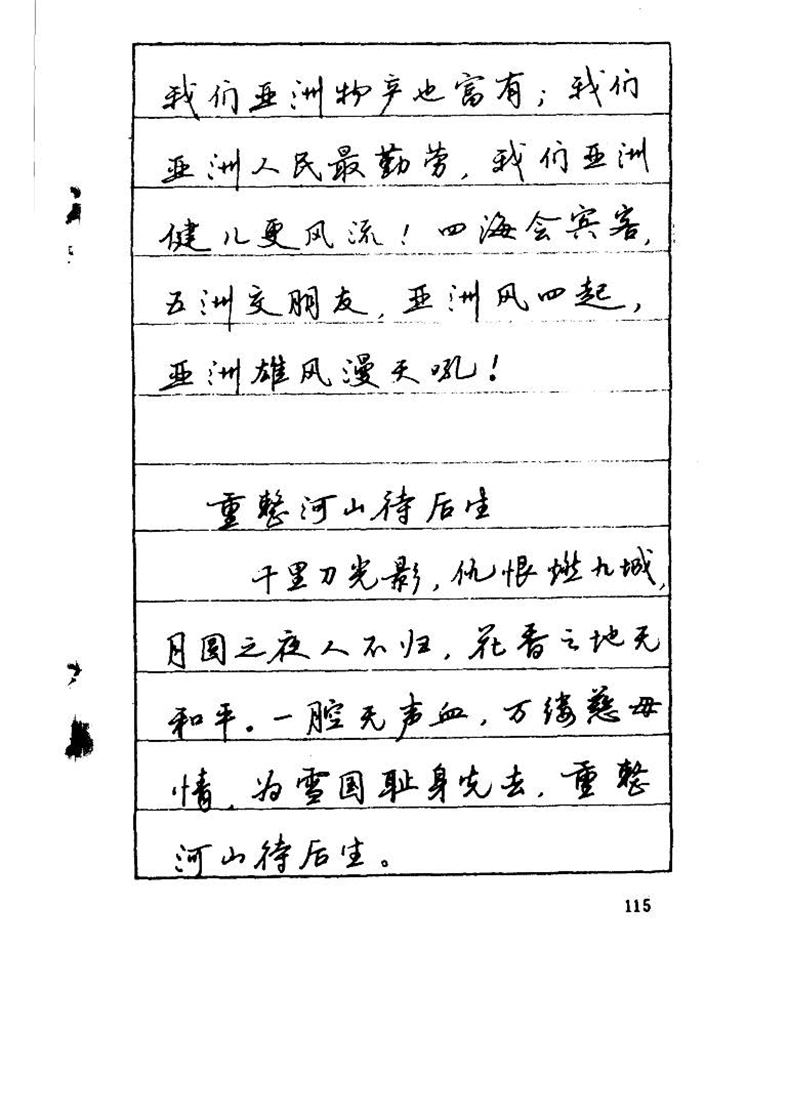 我们亚洲物产也富有；我们
亚洲人民最勤劳，我们亚洲
健儿更风流！四海会宾客，
五洲交朋友，亚洲风四起，
亚洲雄风漫天吼！
重整河山待后生
千里刀光影，仇恨燃九城，
月圆之夜人不归，花香之地无
和平。一腔无声血，万缕慈母
情，为雪国耻身先去，重整
河山待后生。
115